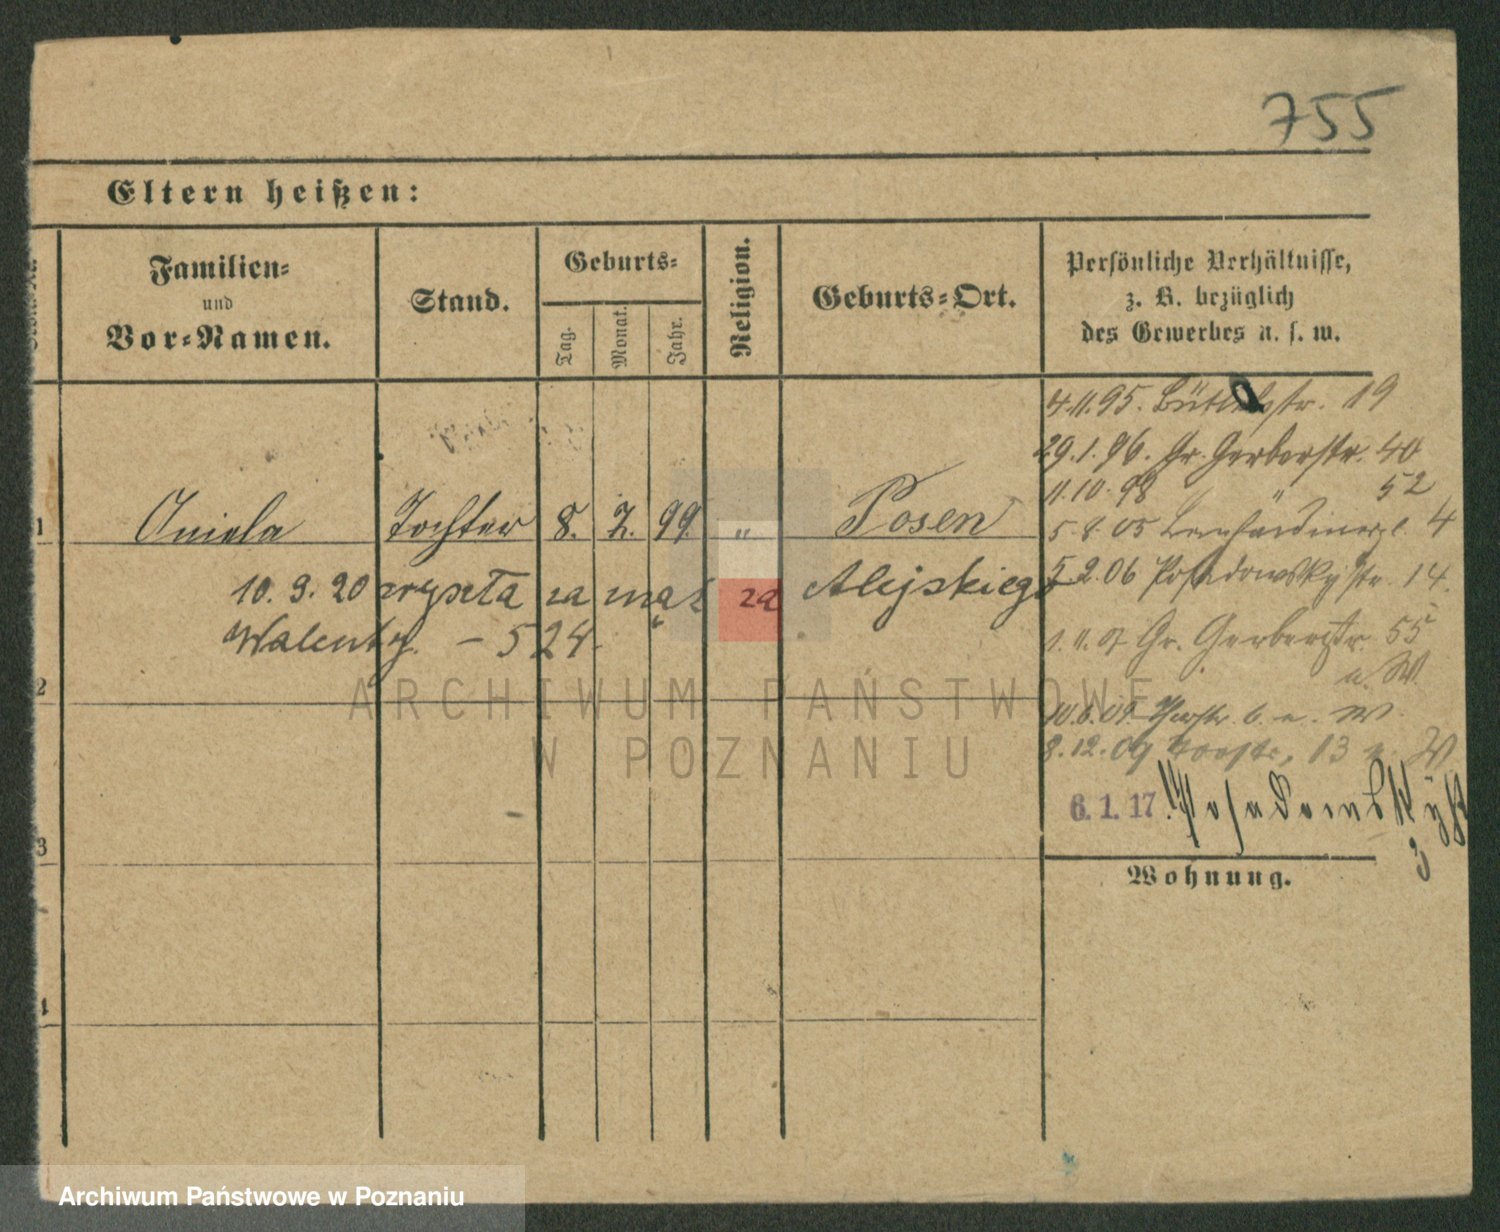 755
Eltern heißen:
Familien=
und
Vor=Namen.
Stand.
Geburts=
Tag.
Monat.
Jahr.
Religion.
Geburts=Ort.
Persönliche Verhältnisse,
z. B. bezüglich
des Gewerbes u. s. w.
4.11.95. 19
29.1.96. Gr. Gerberstr. 40
11.10.98 " 52
1 Aniela Tochter 8. 2. 99. " Posen
5.8.05 Bernhardinerpl. 4
10. 9. 20 wyszła za mąż za Alejskiego
5.2.06 Posadowskystr. 14.
Walenty. – 524.
1.11.07 Gr. Gerberstr. 55
u. W.
2
10.6.09. 6. u. W.
8.12.09 13 u. W
6.1.17
3
Wohnung.
4
ARCHIWUM PAŃSTWOWE
W POZNANIU
Archiwum Państwowe w Poznaniu